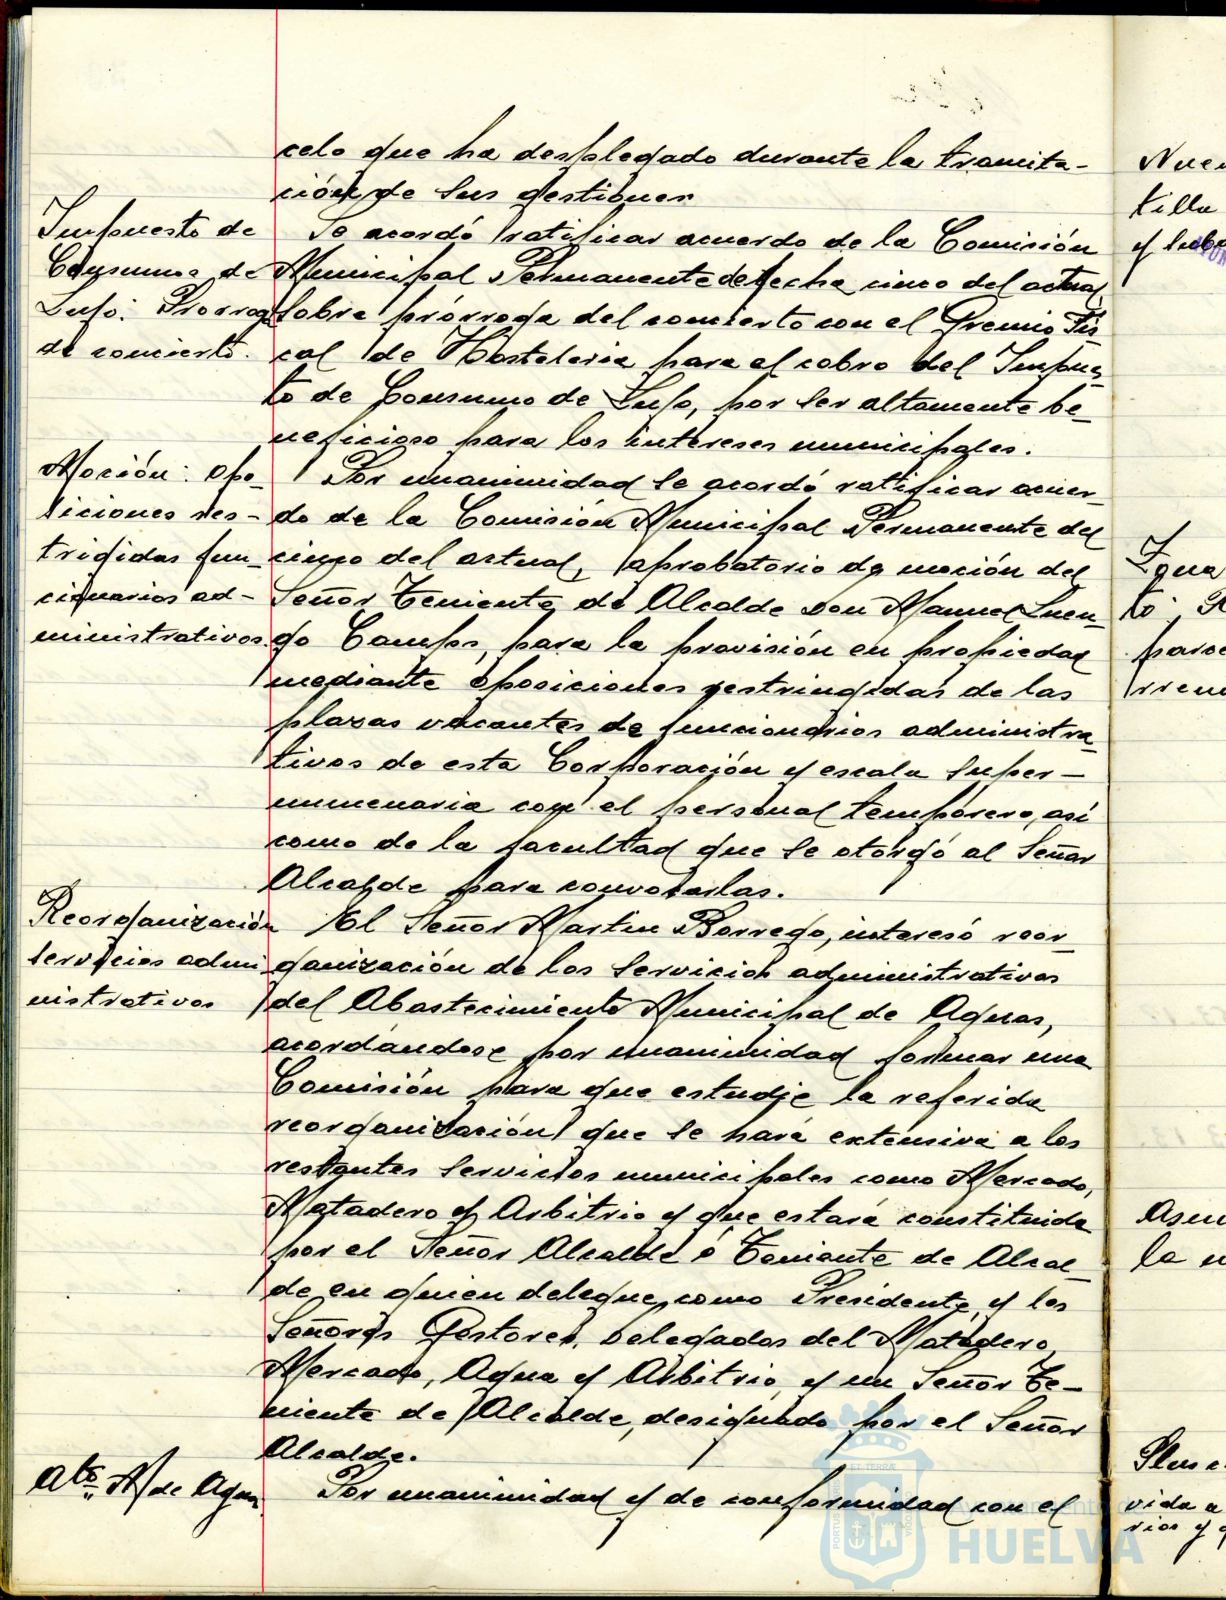 celo que ha desplegado durante la tramita-
ción de sus gestiones
Impuesto de
Consumos de
Lujo: Prorroga
de concierto.
Se acordó ratificar acuerdo de la Comisión
Municipal Permanente de fecha cinco del actual,
sobre prórroga del concierto con el Gremio Fis-
cal de Hosteleria para el cobro del Impues-
to de Consumo de Lujo, por ser altamente be-
neficioso para los intereses municipales.
Moción: Opo-
siciones res-
trigidas fun-
cionarios ad-
ministrativos.
Por unanimidad se acordó ratificar acuer-
do de la Comisión Municipal Permanente del
cinco del actual, aprobatorio de moción del
Señor Teniente de Alcalde Don Manuel Luen-
go Camps, para la provisión en propiedad
mediante oposiciones restringidas de las
plazas vacantes de funcionarios administra-
tivos de esta Corporación y escala super-
numeraria con el personal temporero, asi
como de la facultad que se otorgó al Señor
Alcalde para convocarlas.
Reorganización
servicios admi
nistrativos
El Señor Martin Borrego, interesó reor-
ganización de los servicios administrativos
del Abastecimiento Municipal de Aguas,
acordándose por unanimidad formar una
Comisión para que estudie la referida
reorganización que se hará extensiva a los
restantes servicios municipales como Mercado,
Matadero y Arbitrio y que estará constituida
por el Señor Alcalde o Teniente de Alcal-
de en quien delegue, como Presidente, y los
Señores Gestores, Delegados del Matadero,
Mercado, Agua y Arbitrio, y un Señor Te-
niente de Alcalde, designado por el Señor
Alcalde.
Abto. M de Agua
Por unanimidad y de conformidad con el
HUELVA